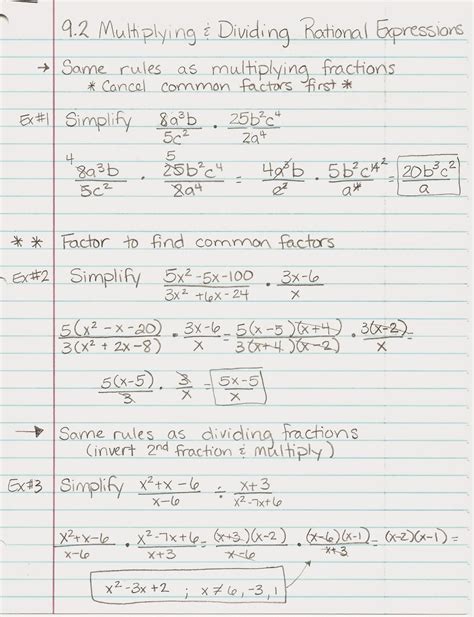 9.2 Multiplying & Dividing Rational Expressions
→ Same rules as multiplying fractions
* Cancel common factors first *
Ex#1 Simplify 8a³b/5c² · 25b²c⁴/2a⁴
4 8a³b/5c² · 5 25b²c⁴/2a⁴ = 4a³b/c² · 5b²c⁴²/a⁴ = 20b³c²/a
** Factor to find common factors
Ex#2 Simplify 5x²-5x-100/3x²+6x-24 · 3x-6/x
5(x²-x-20)/3(x²+2x-8) · 3x-6/x = 5(x-5)(x+4)/3(x+4)(x-2) · 3(x-2)/x =
5(x-5)/3 · 3/x = 5x-5/x
→ Same rules as dividing fractions
(invert 2nd fraction & multiply)
Ex#3 Simplify x²+x-6/x-6 ÷ x+3/x²-7x+6
x²+x-6/x-6 · x²-7x+6/x+3 = (x+3)(x-2)/x-6 · (x-6)(x-1)/x+3 = (x-2)(x-1) =
x²-3x+2 ; x≠6,-3,1